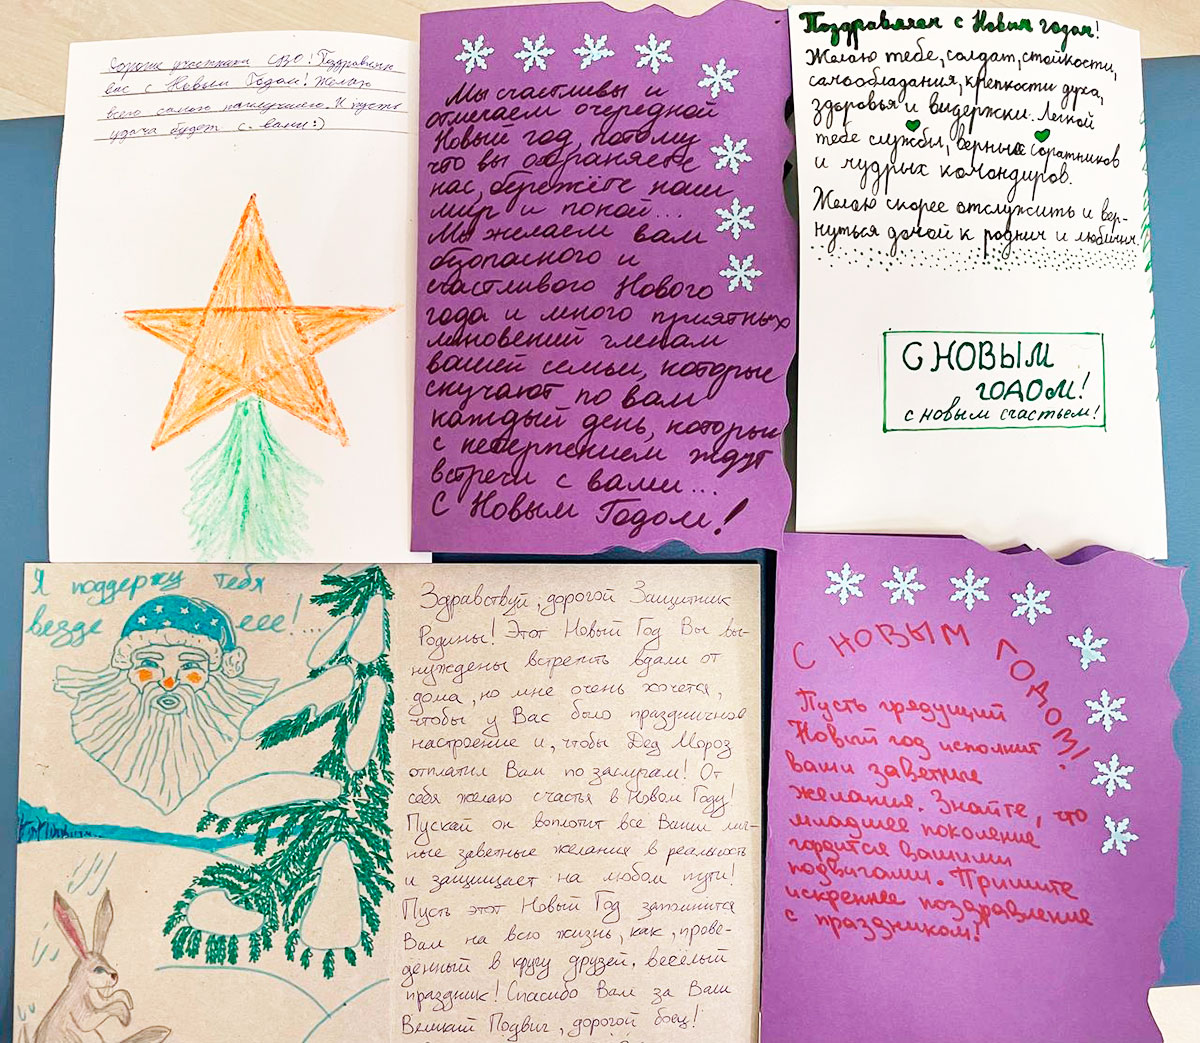 Дорогие участники СВО! Поздравляем
вас с Новым Годом! Желаю
всего самого наилучшего. И пусть
удача будет с вами:)
Мы счастливы и
отмечаем очередной
Новый год, потому
что вы охраняете
нас, бережёте наш
мир и покой...
Мы желаем вам
безопасного и
счастливого Нового
года и много приятных
мгновений членам
вашей семьи, которые
скучают по вам
каждый день, которые
с нетерпением ждут
встречи с вами...
С Новым Годом!
Поздравляем с Новым годом!
Желаю тебе, солдат, стойкости,
самообладания, крепкости духа,
здоровья и выдержки. Легкой
тебе службы, верных соратников
и мудрых командиров.
Желаю скорее отслужить и вер-
нуться домой к родным и любимым.
С НОВЫМ
ГОДОМ!
с новым счастьем!
Я поддержу тебя
везде еее!...
Здравствуй, дорогой Защитник
Родины! Этот Новый Год Вы вы-
нуждены встретить вдали от
дома, но мне очень хочется,
чтобы у Вас было праздничное
настроение и, чтобы Дед Мороз
отплатил Вам по заслугам! От
себя желаю счастья в Новом Году!
Пускай он воплотит все Ваши лич-
ные заветные желания в реальность
и защищает на любом пути!
Пусть этот Новый Год запомнится
Вам на всю жизнь, как, прове-
денный в кругу друзей, веселый
праздник! Спасибо Вам за Ваш
Великий Подвиг, дорогой боец!
С НОВЫМ ГОДОМ!
Пусть грядущий
Новый год исполнит
ваши заветные
желания. Знайте, что
младшее поколение
гордится вашими
подвигами. Примите
искреннее поздравление
с праздником!